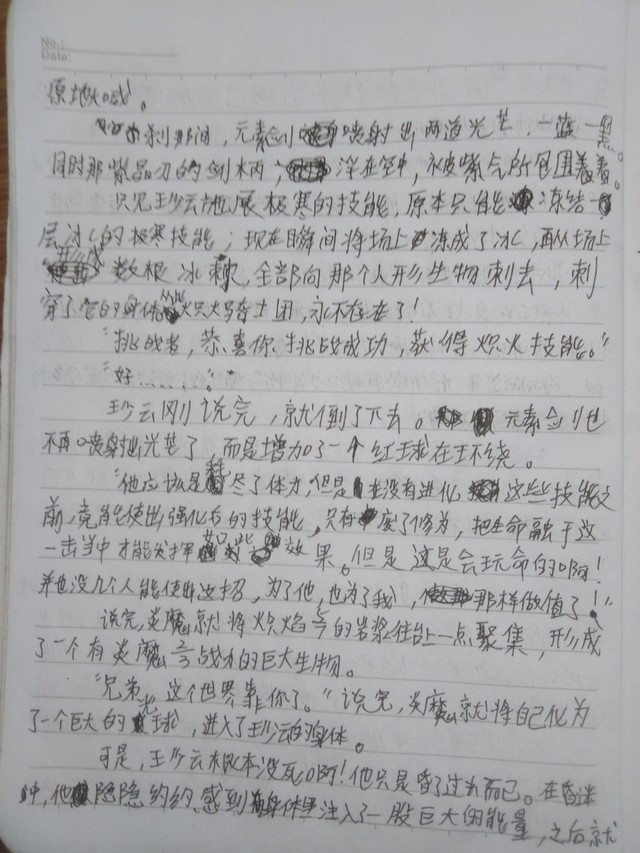 No.:
Date:
原地形成。
刹那间，元素剑喷射出两道光芒，一蓝一黑。
同时那紫晶刀的剑柄，浮在空中，被紫气所包围着。
只见王少云施展极寒的技能，原本只能冻结一
层冰的极寒技能；现在瞬间将场上冻成了冰，再从场上
数根冰刺，全部向那个人形生物刺去，刺
穿了它的身体，永不存在了！
“挑战者，恭喜你挑战成功，获得炽火技能。”
“好……”
王少云刚说完，就倒了下去。元素剑也
不再喷射出光芒了，而是增加了一个红球在环绕。
“他应该是耗尽了体力，但是在没有进化这些技能之
前，竟能使出强化后的技能，只有废了修为，把生命融于这
一击当中才能发挥效果。但是这是会玩命的啊！
并也没几个人能使出这招，为了他，也为了我，那样做值了！”
说完，炎魔就将炽焰的岩浆往台上一点聚集，形成
了一个有炎魔战力的巨大生物。
“兄弟，这个世界靠你了。”说完，炎魔就将自己化为
了一个巨大的球，进入了王少云的身体。
可是，王少云根本没死啊！他只是昏了过去而已。在昏迷
中，他隐隐约约感到身体里注入了一股巨大的能量，之后就